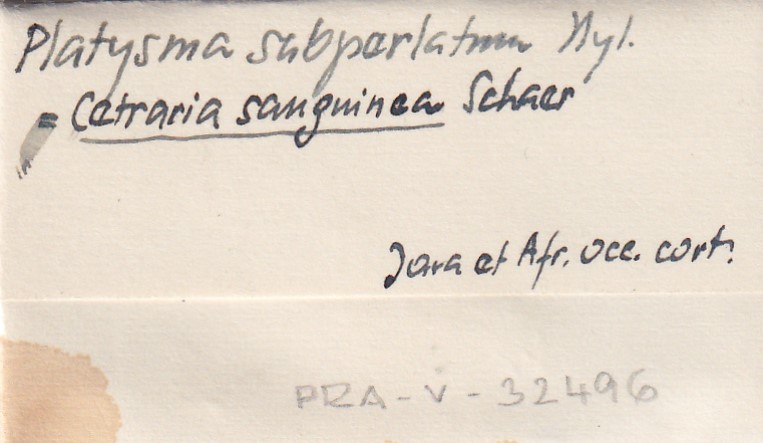 Platysma subperlatum Nyl.
= Cetraria sanguinea Schaer
Java et Afr. occ. cort.
PRA-V-32496